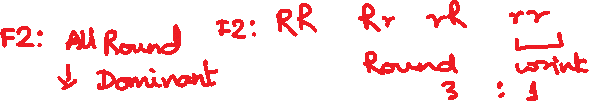 F2: All Round
↓ Dominant
F2: RR Rr rR rr
Round wrink
3 : 1